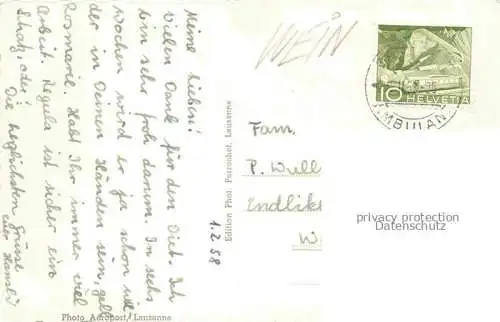 Meine Lieben!
Vielen Dank für den Diet. Ich
bin sehr froh darum. In sechs
Wochen wird er ja schon wie-
der in Deinen Händen sein, gell
Rosmarie. Habt Ihr immer viel
Arbeit. Regula ist sicher ein
Schatz, oder?
Die herzlichsten Grüsse
euer Hansli
1.2.58
Photo Aéroport, Lausanne
Edition Phot Perrochet, Lausanne
WEIN
10 HELVETIA
AMBULAN
Fam.
P. Wull
Endlik
W
privacy protection
Datenschutz